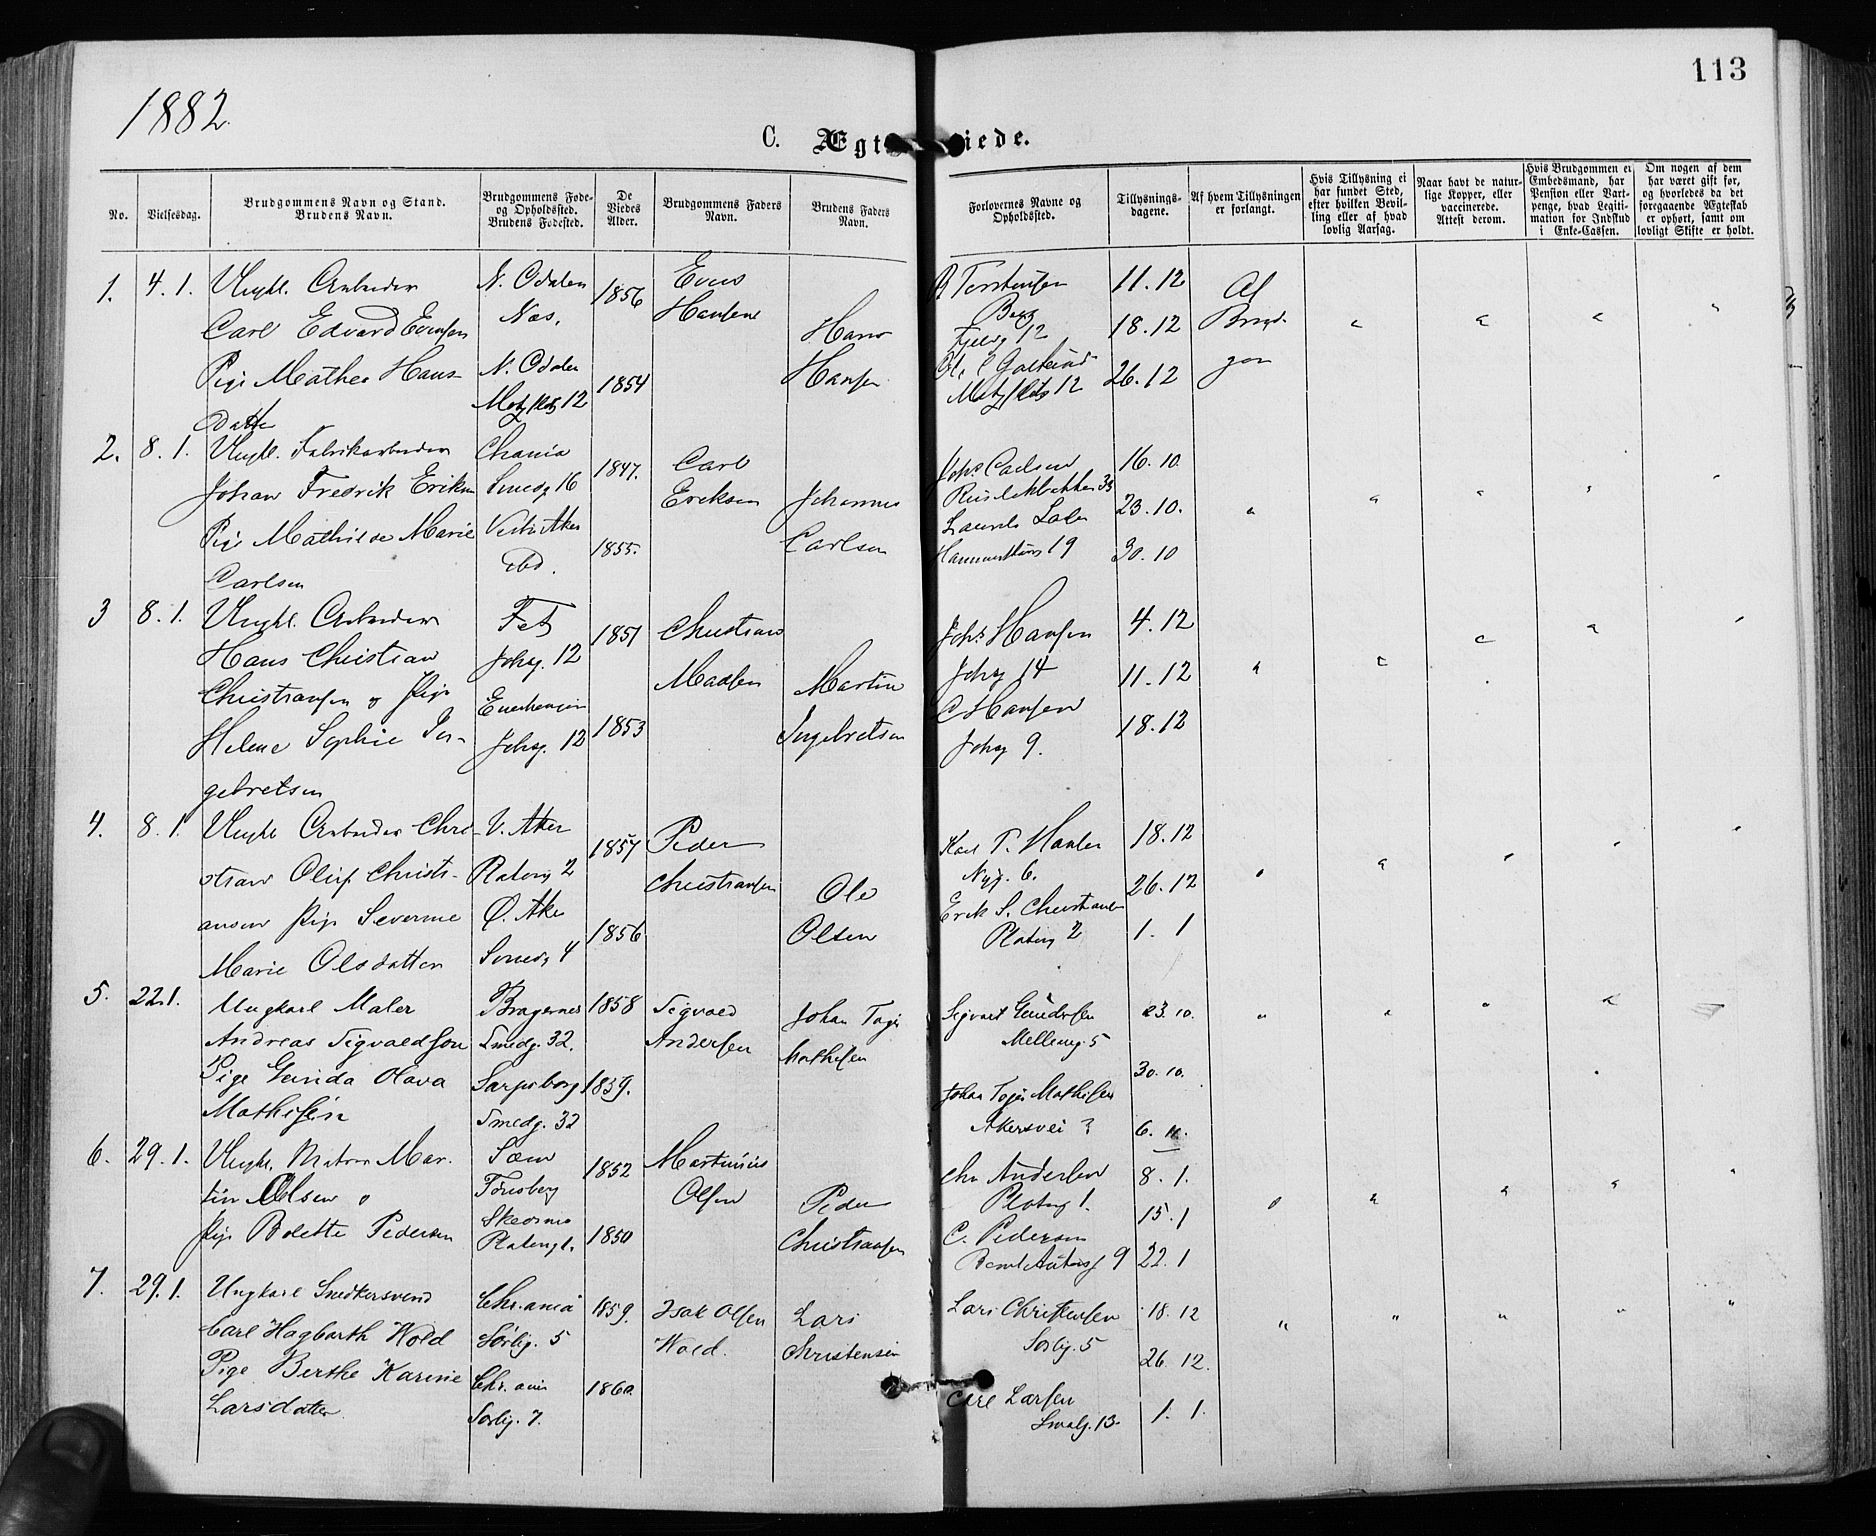 113
1882.
C. Ægt iede.
No.
Vielsesdag.
Brudgommens Navn og Stand.
Brudens Navn.
Brudgommens Føde-
og Opholdsted.
Brudens Fødested.
De
Viedes
Alder.
Brudgommens Faders
Navn.
Brudens Faders
Navn.
Forlovernes Navne og
Opholdsted.
Tillysnings-
dagene.
Af hvem Tillysningen
er forlangt.
Hvis Tillysning ei
har fundet Sted,
efter hvilken Bevil-
ling eller af hvad
lovlig Aarsag.
Naar havt de natur-
lige Kopper, eller
vaccinerede.
Attest derom.
Hvis Brudgommen er
Embedsmand, har
Pension eller Vart-
penge, hvad Legiti-
mation for Indskud
i Enke-Cassen.
Om nogen af dem
har været gift før,
og hvorledes da det
foregaaende Ægteskab
er ophørt, samt om
lovligt Skifte er holdt.
1. 4. 1.
Ungkl. Arbeider
Carl Edvard Evensen
Pige Mathea Hans-
datter
N. Odalen
Næs,
N. Odalen
12
1856
1854
Evens
Hansen
Hans
Hansen
Torstensen
12
12
11. 12
18. 12
26. 12
Af
Brud-
gom
2. 8. 1.
Ungkl. Fabrikarbeider
Johan Fredrik Eriksen
Pige Mathilde Marie
Carlsen
Chrania
Smedg 16
Vestre Aker
ibd.
1847.
1855.
Carl
Eriksen
Johannes
Carlsen
Johs Carlsen
33
Laurits
19
16. 10.
23. 10.
30. 10
3 8. 1.
Ungkl. Arbeider
Hans Christian
Christiansen og Pige
Helene Sophie In-
gebretsen
Fet
Johsg. 12
Johsg. 12
1851
1853
Christian
Madsen
Martin
Ingebretsen
Johs Hansen
Johsg 14
C Hansen
Johsg 9.
4. 12
11. 12
18. 12
4. 8. 1.
Ungkl Arbeider Chri-
stian Oluf Christi-
ansen Pige Severine
Marie Olsdatter
V. Aker
Platoug 2
Ø. Aker
Smedg 4
1857
1856
Peder
Christiansen
Ole
Olsen
Karl P. Hansen
Nyg. 6.
Erik S. Christiansen
Platoug 2
18. 12
26. 12
1. 1
5. 22.1.
Ungkarl Maler
Andreas Sigvaldsen
Pige Gunda Olava
Mathisen
Bragernes
Smedg. 32.
Sarpsborg
Smedg. 32
1858
1859.
Sigvald
Andersen
Johan
Mathisen
Sigvart Gundersen
Mellemg. 5
Johan Mathisen
Akersvei
23. 10.
30. 10.
6. 11.
6. 29. 1.
Ungkl. Matros Mar-
tin Olsen o
Pige Bolette Pedersen
Sæm
Tønsberg
Skedsmo
Platoug 1.
1852
1850
Martinius
Olsen
Peder
Christiansen
Chr Andersen
Platoug 1.
C. Pedersen
9
8. 1.
15. 1
22. 1
7. 29. 1.
Ungkarl Snedkersvend
Carl Hagbarth Wold
Pige Berthe Karine
Larsdatter
Chr. ania
Sørlig. 5
Chr. ania
Sørlig. 7.
1859.
1860.
Isak Olsen
Wold.
Lars
Christensen
Lars Christensen
Sørlig. 5
Carl Larsen
Smalg. 13.
18. 12
26. 12.
1. 1.